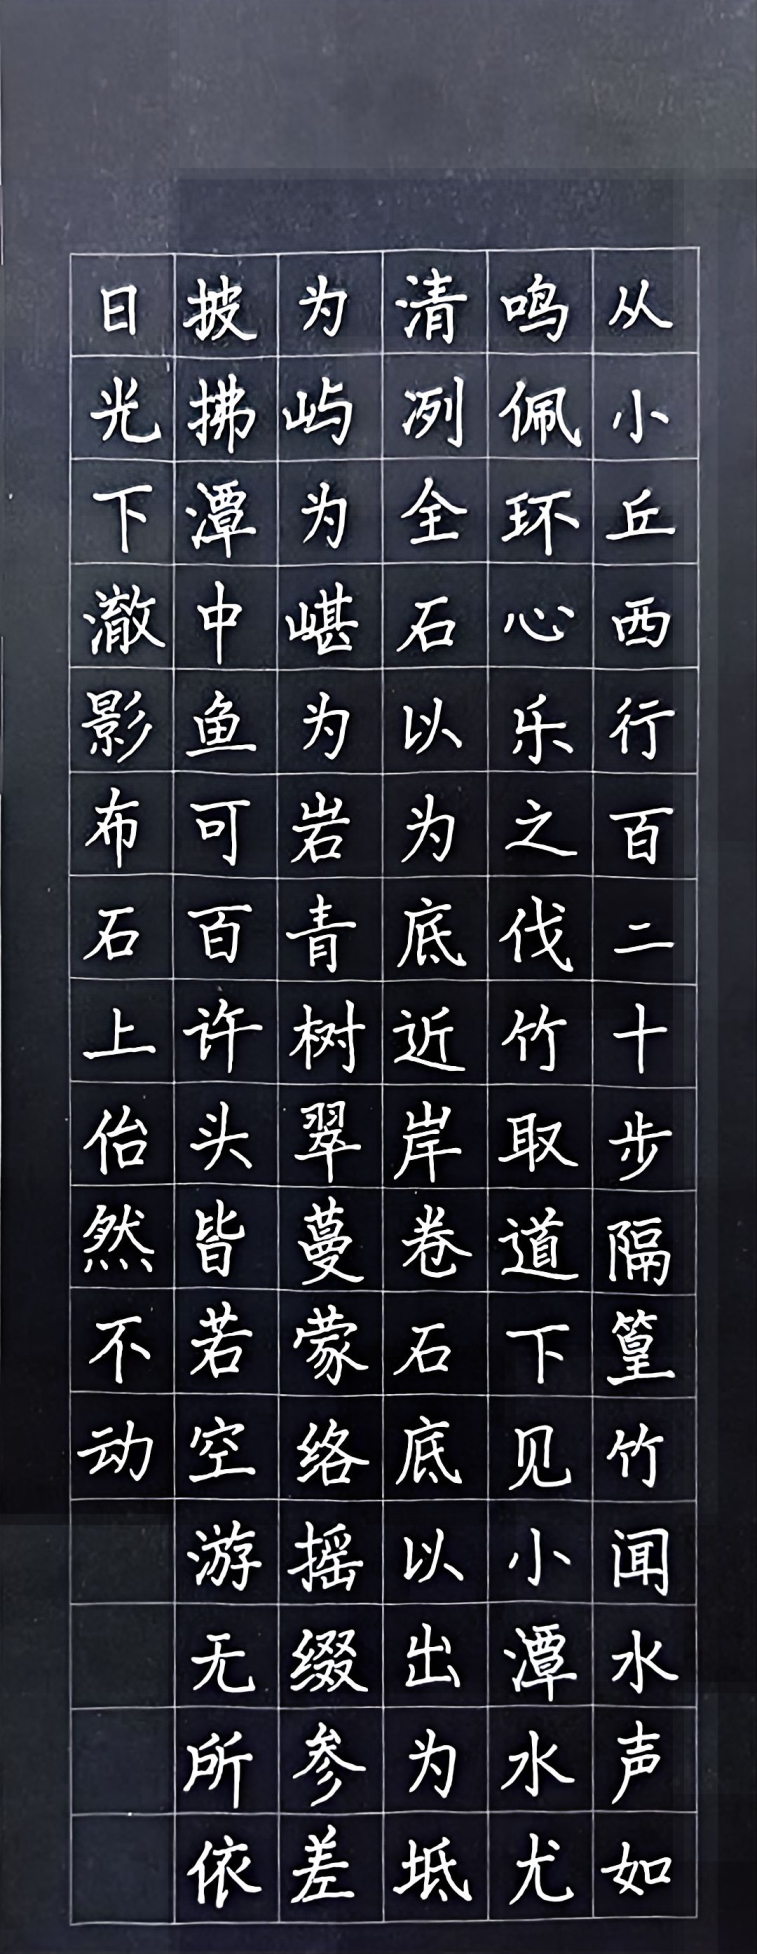 从小丘西行百二十步隔篁竹闻水声如
鸣佩环心乐之伐竹取道下见小潭水尤
清冽全石以为底近岸卷石底以出为坻
为屿为嵁为岩青树翠蔓蒙络摇缀参差
披拂潭中鱼可百许头皆若空游无所依
日光下澈影布石上佁然不动